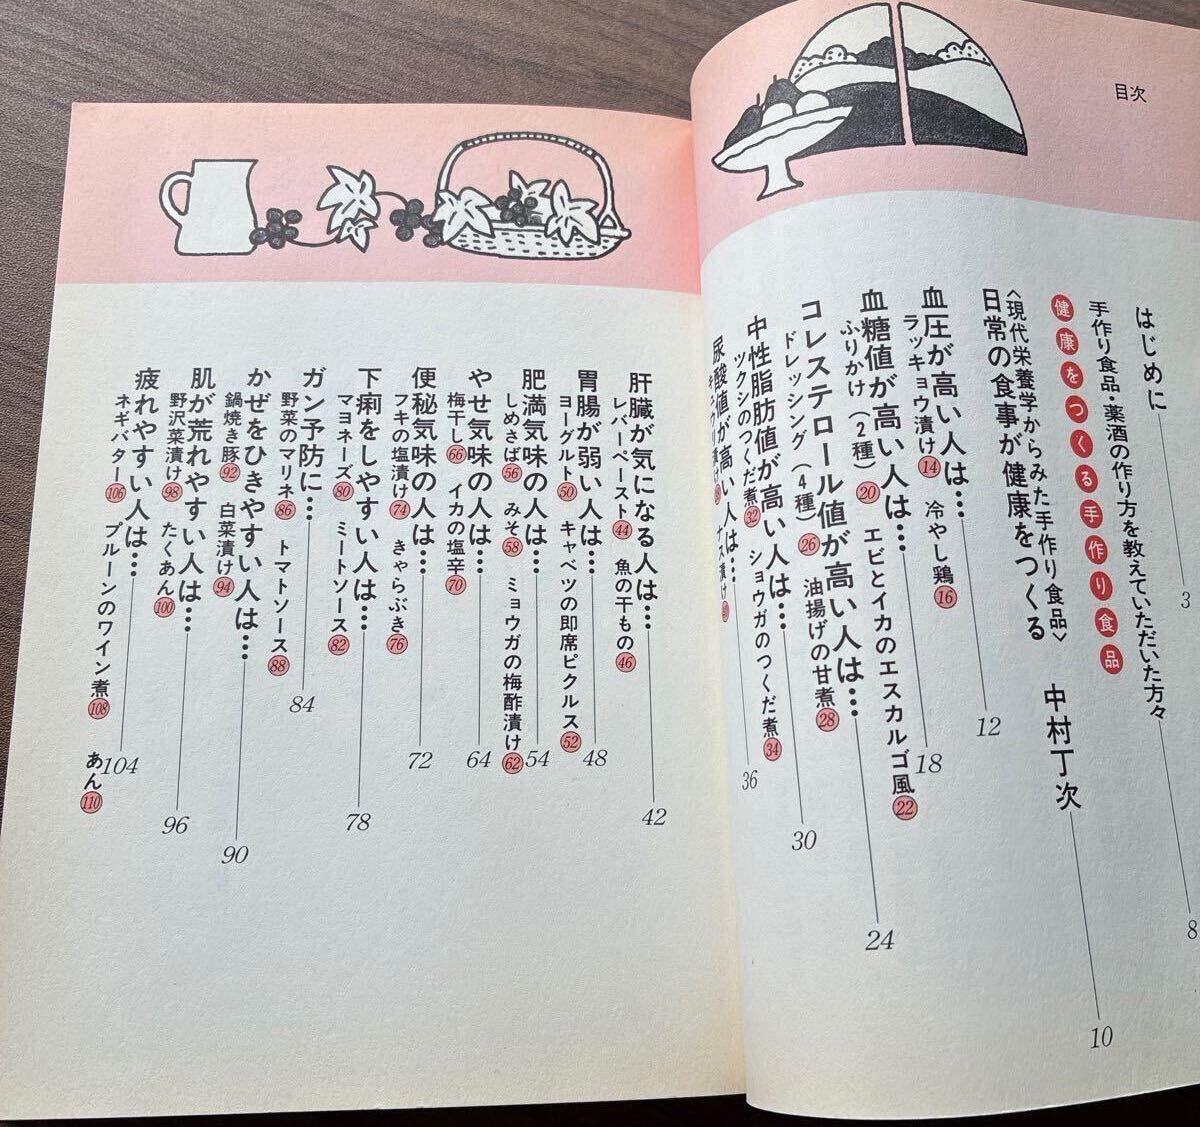 目次
はじめに 3
手作り食品・薬酒の作り方を教えていただいた方々 8
健康をつくる手作り食品
〈現代栄養学からみた手作り食品〉
日常の食事が健康をつくる 中村丁次 10
血圧が高い人は… 12
ラッキョウ漬け14 冷やし鶏16
血糖値が高い人は… 18
ふりかけ（2種）20 エビとイカのエスカルゴ風22
コレステロール値が高い人は… 24
ドレッシング（4種）26 油揚げの甘煮28
中性脂肪値が高い人は… 30
ツクシのつくだ煮32 ショウガのつくだ煮34
尿酸値が高い人は… 36
肝臓が気になる人は… 42
レバーペースト44 魚の干もの46
胃腸が弱い人は… 48
ヨーグルト50 キャベツの即席ピクルス52
肥満気味の人は… 54
しめさば56 みそ58 ミョウガの梅酢漬け62
やせ気味の人は… 64
梅干し66 イカの塩辛70
便秘気味の人は… 72
フキの塩漬け74 きゃらぶき76
下痢をしやすい人は… 78
マヨネーズ80 ミートソース82
ガン予防に… 84
野菜のマリネ86 トマトソース88
かぜをひきやすい人は… 90
鍋焼き豚92 白菜漬け94
肌が荒れやすい人は… 96
野沢菜漬け98 たくあん100
疲れやすい人は… 104
ネギバター106 プルーンのワイン煮108 あん110